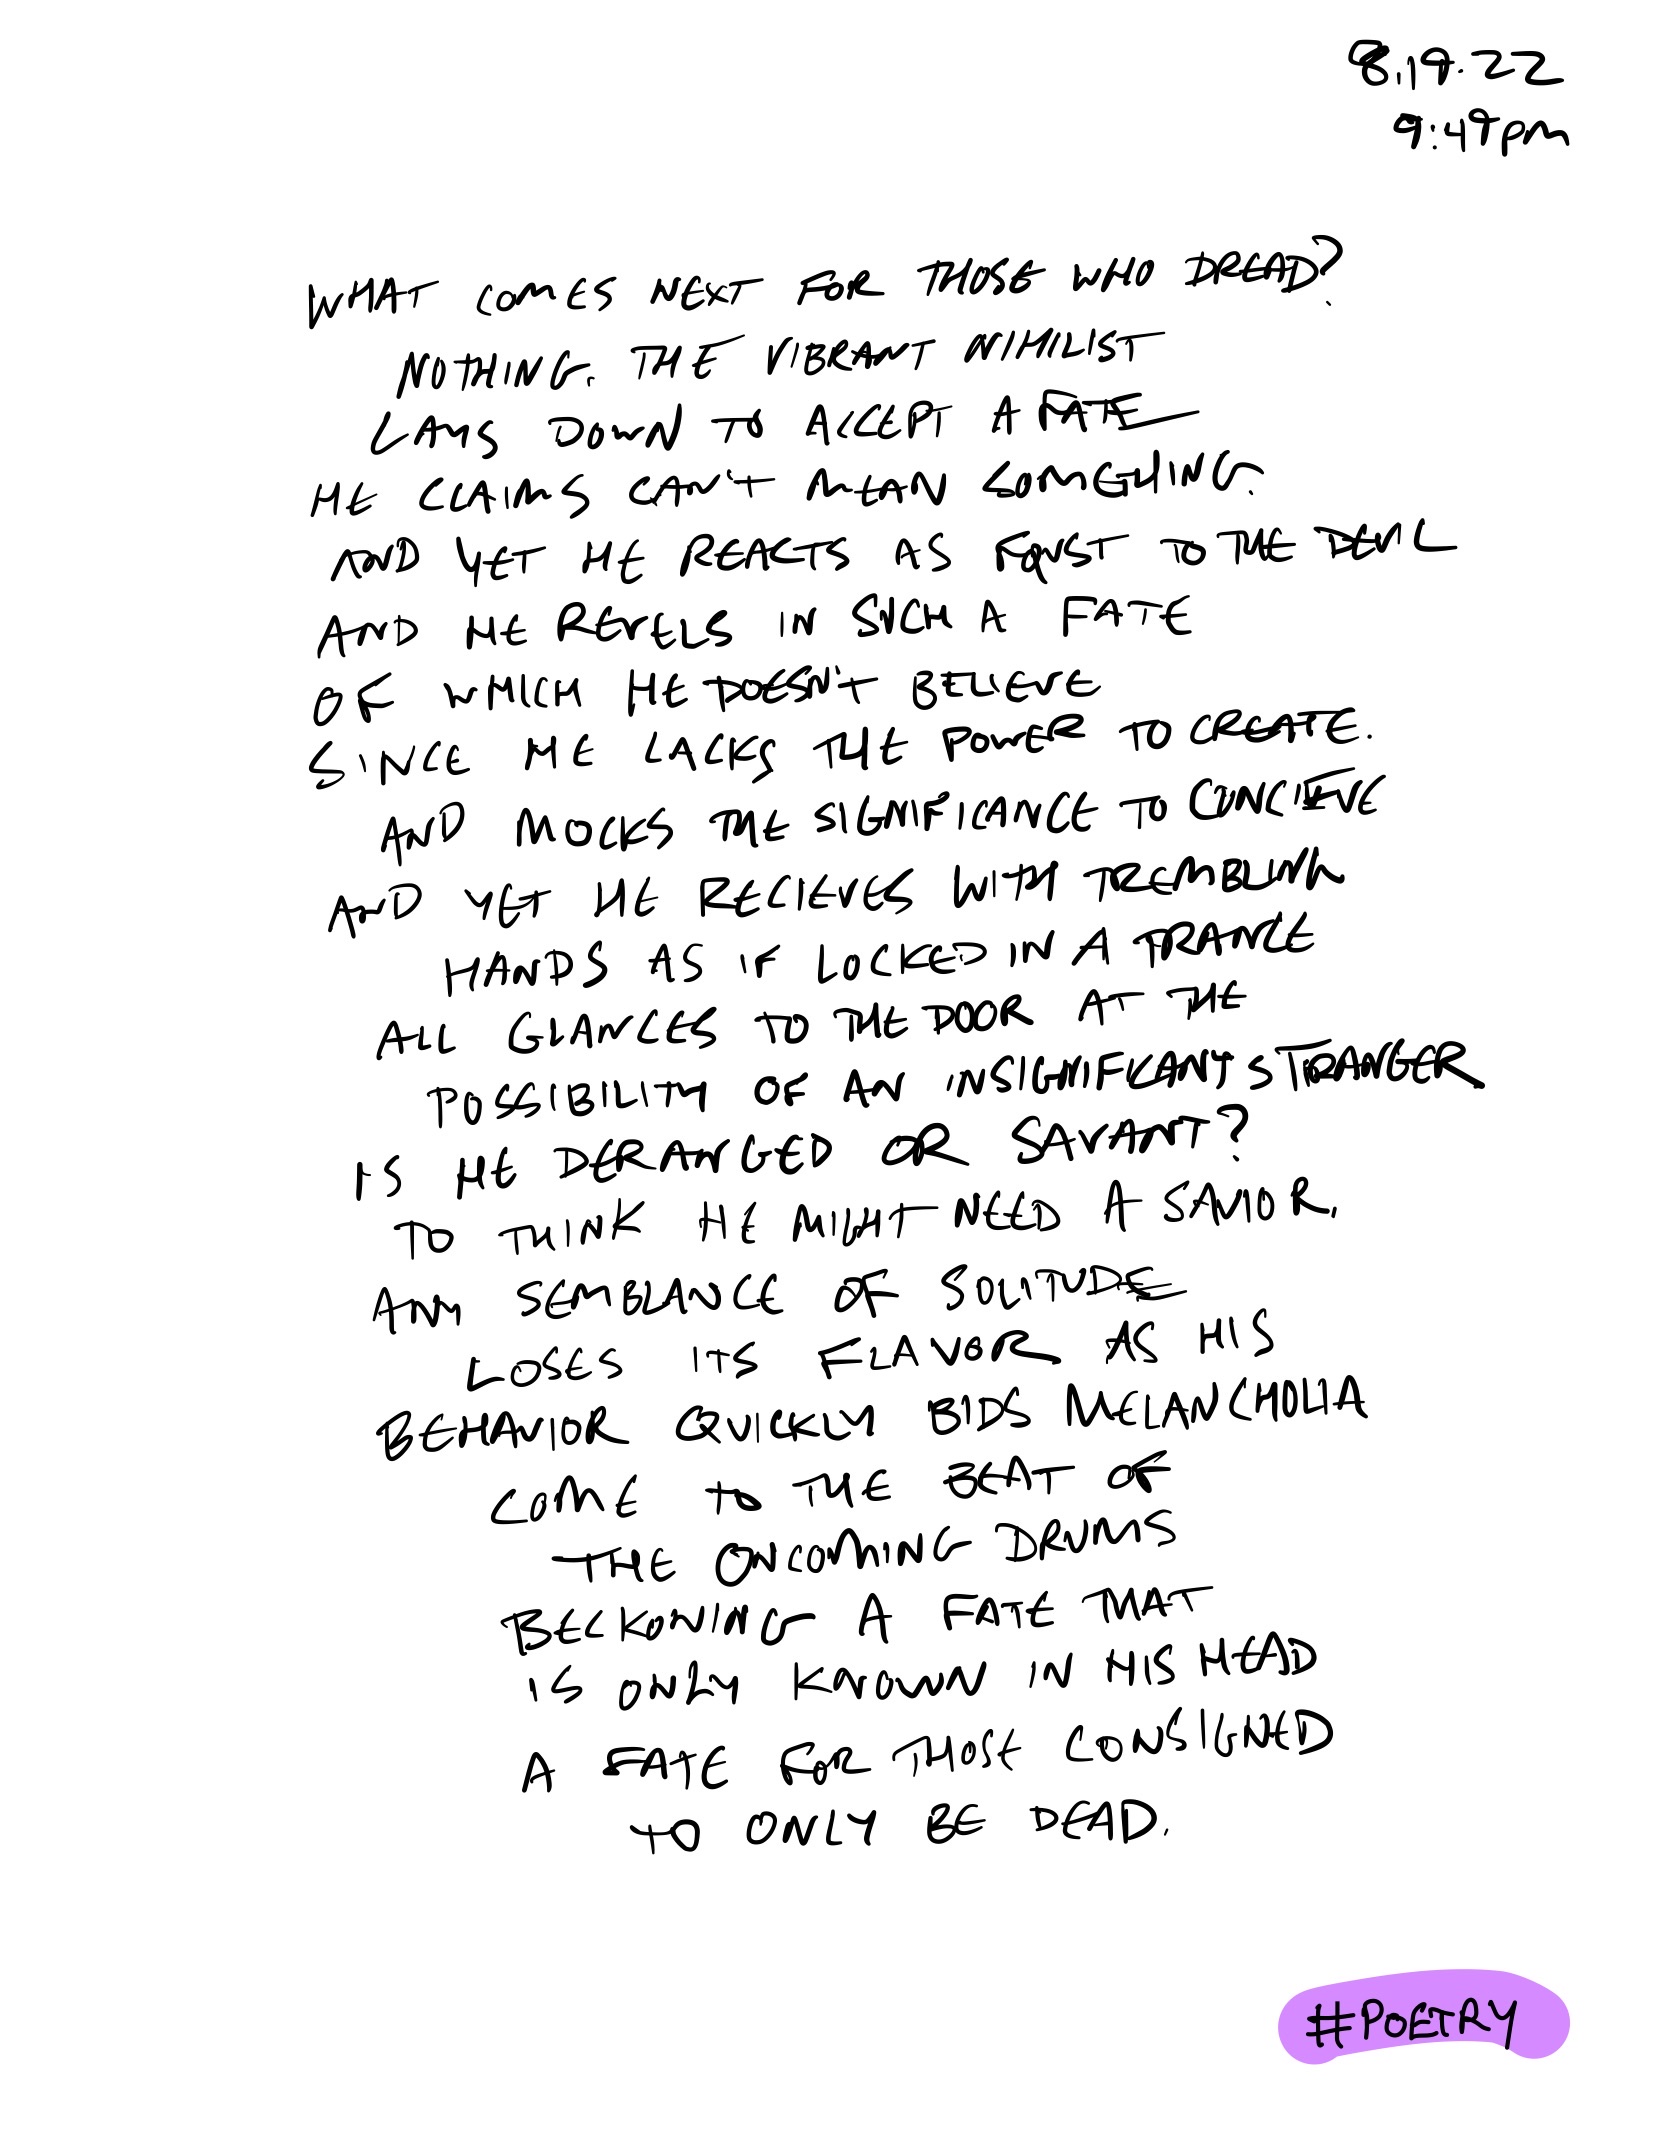 8.19.22
9:49pm
WHAT COMES NEXT FOR THOSE WHO DREAD?
NOTHING. THE VIBRANT NIHILIST
LAYS DOWN TO ACCEPT A FATE
HE CLAIMS CAN'T MEAN SOMETHING.
AND YET HE REACTS AS FAUST TO THE DEVIL
AND HE REVELS IN SUCH A FATE
OF WHICH HE DOESN'T BELIEVE
SINCE HE LACKS THE POWER TO CREATE.
AND MOCKS THE SIGNIFICANCE TO CONCIEVE
AND YET HE RECIEVES WITH TREMBLING
HANDS AS IF LOCKED IN A TRANCE
ALL GLANCES TO THE DOOR AT THE
POSSIBILITY OF AN INSIGNIFICANT STRANGER
IS HE DERANGED OR SAVANT?
TO THINK HE MIGHT NEED A SAVIOR.
ANY SEMBLANCE OF SOLITUDE
LOSES ITS FLAVOR AS HIS
BEHAVIOR QUICKLY BIDS MELANCHOLIA
COME TO THE BEAT OF
THE ONCOMING DRUMS
BECKONING A FATE THAT
IS ONLY KNOWN IN HIS HEAD
A FATE FOR THOSE CONSIGNED
TO ONLY BE DEAD.
#POETRY